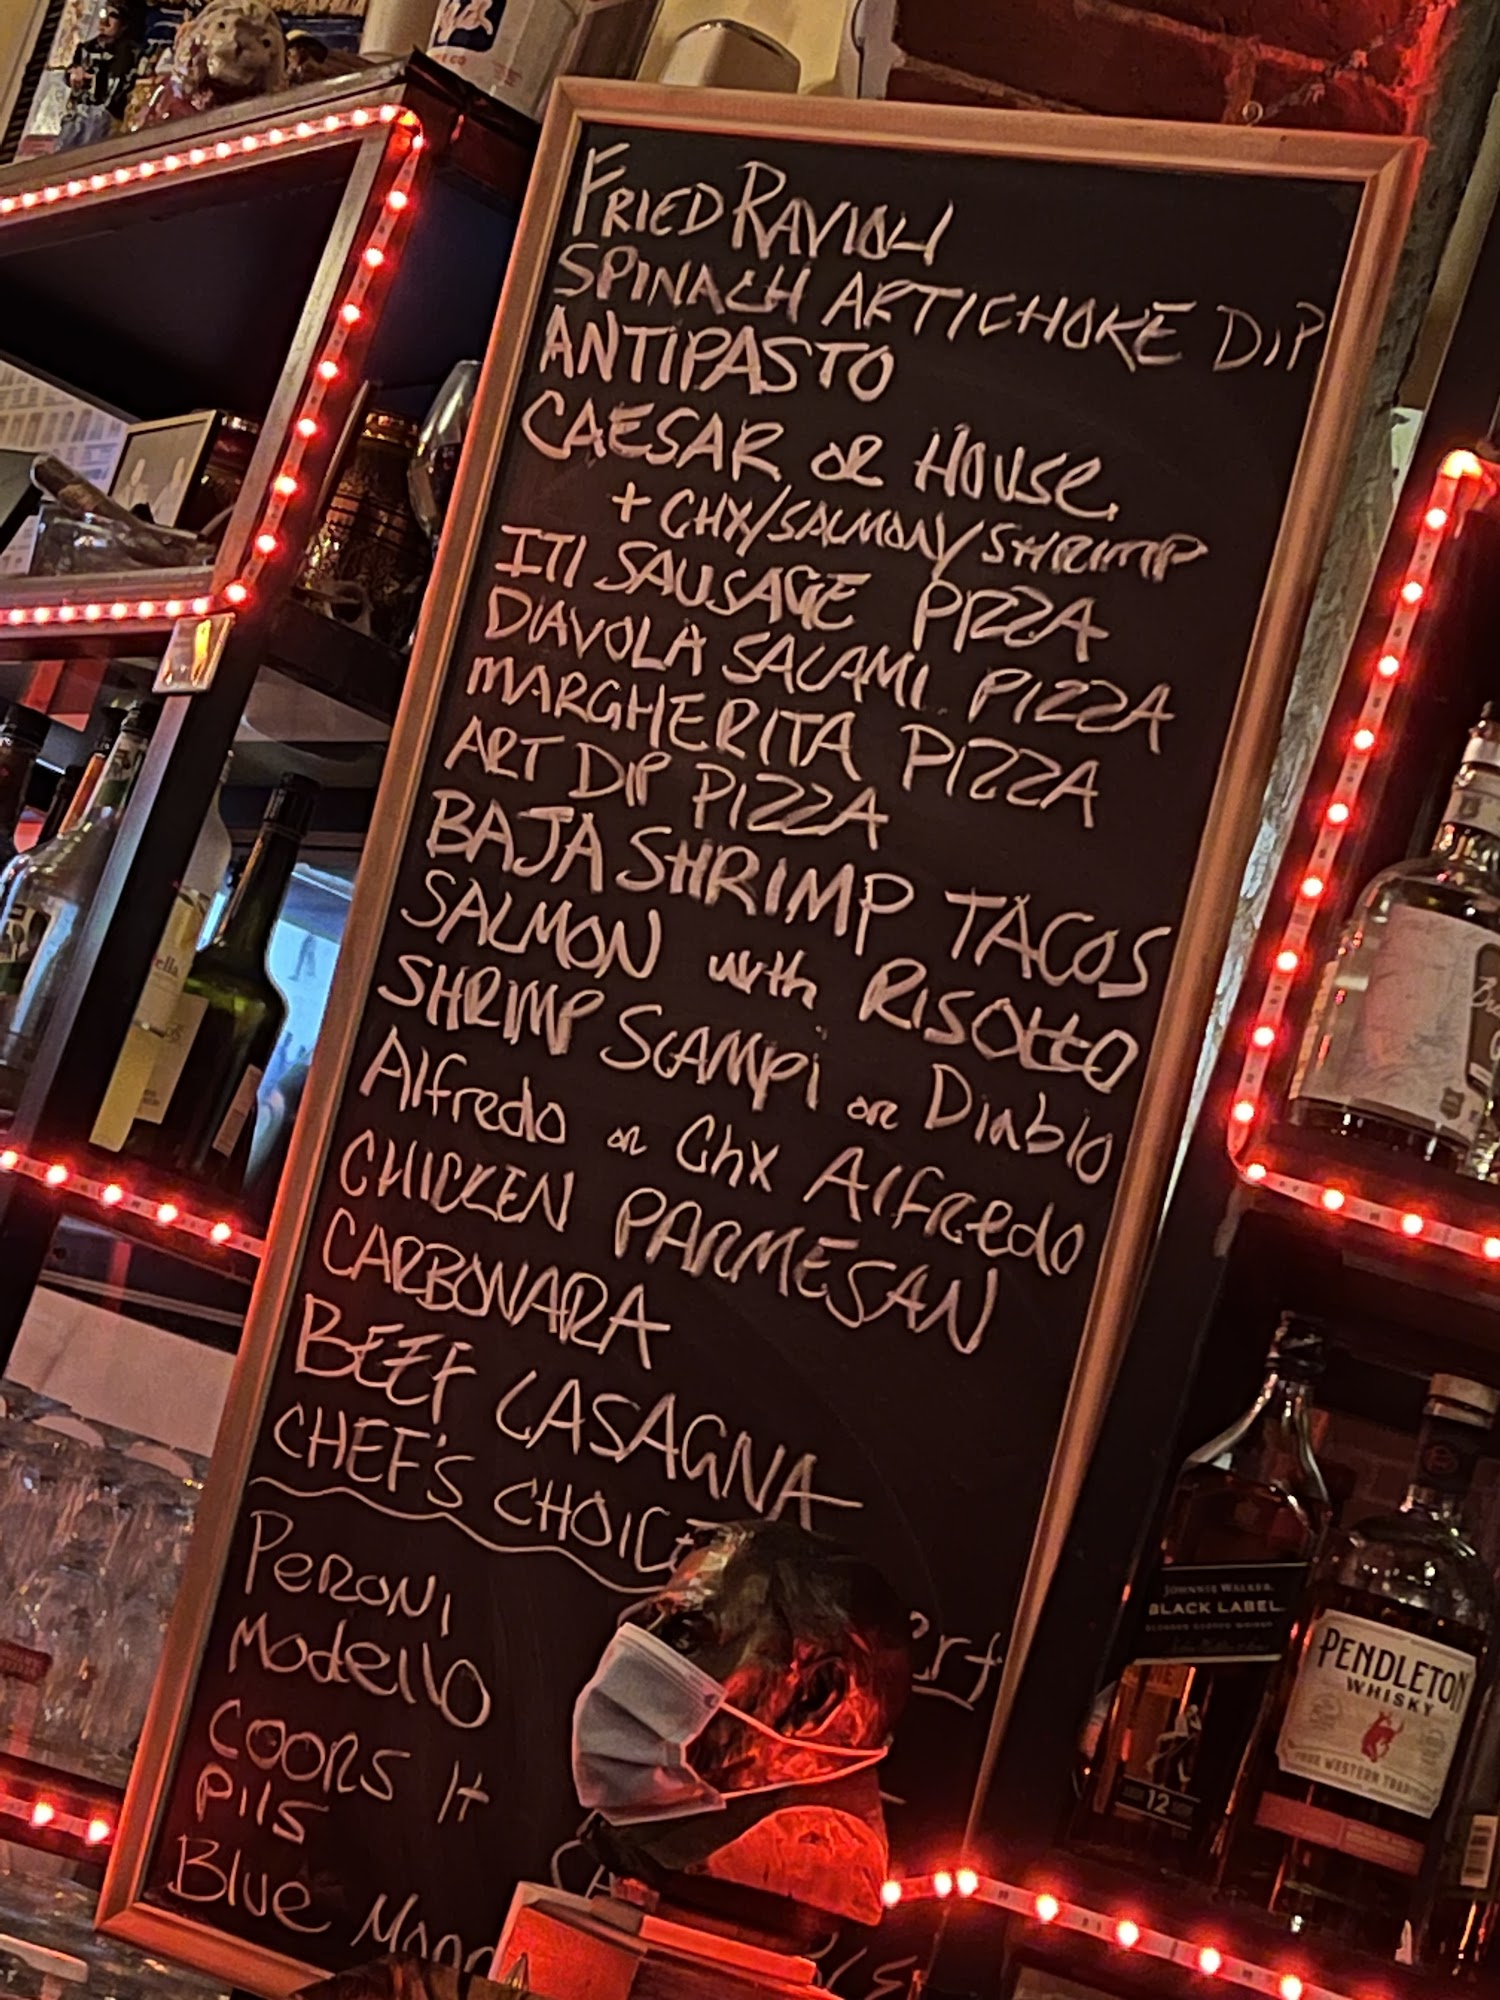 FRIED RAVIOLI
SPINACH ARTICHOKE DIP
ANTIPASTO
CAESAR OR HOUSE
+ CHX/SALMON/SHRIMP
ITI SAUSAGE PIZZA
DIAVOLA SALAMI PIZZA
MARGHERITA PIZZA
ART DIP PIZZA
BAJA SHRIMP TACOS
SALMON with RISOtto
SHRIMP SCAMPi OR Diablo
Alfredo OR Chx Alfredo
CHICKEN PARMESAN
CARBONARA
BEEF LASAGNA
CHEF'S CHOICE
PERONI
Modello
COORS lt
PilS
Blue
JOHNNIE WALKER
BLACK LABEL
12
PENDLETON
WHISKY